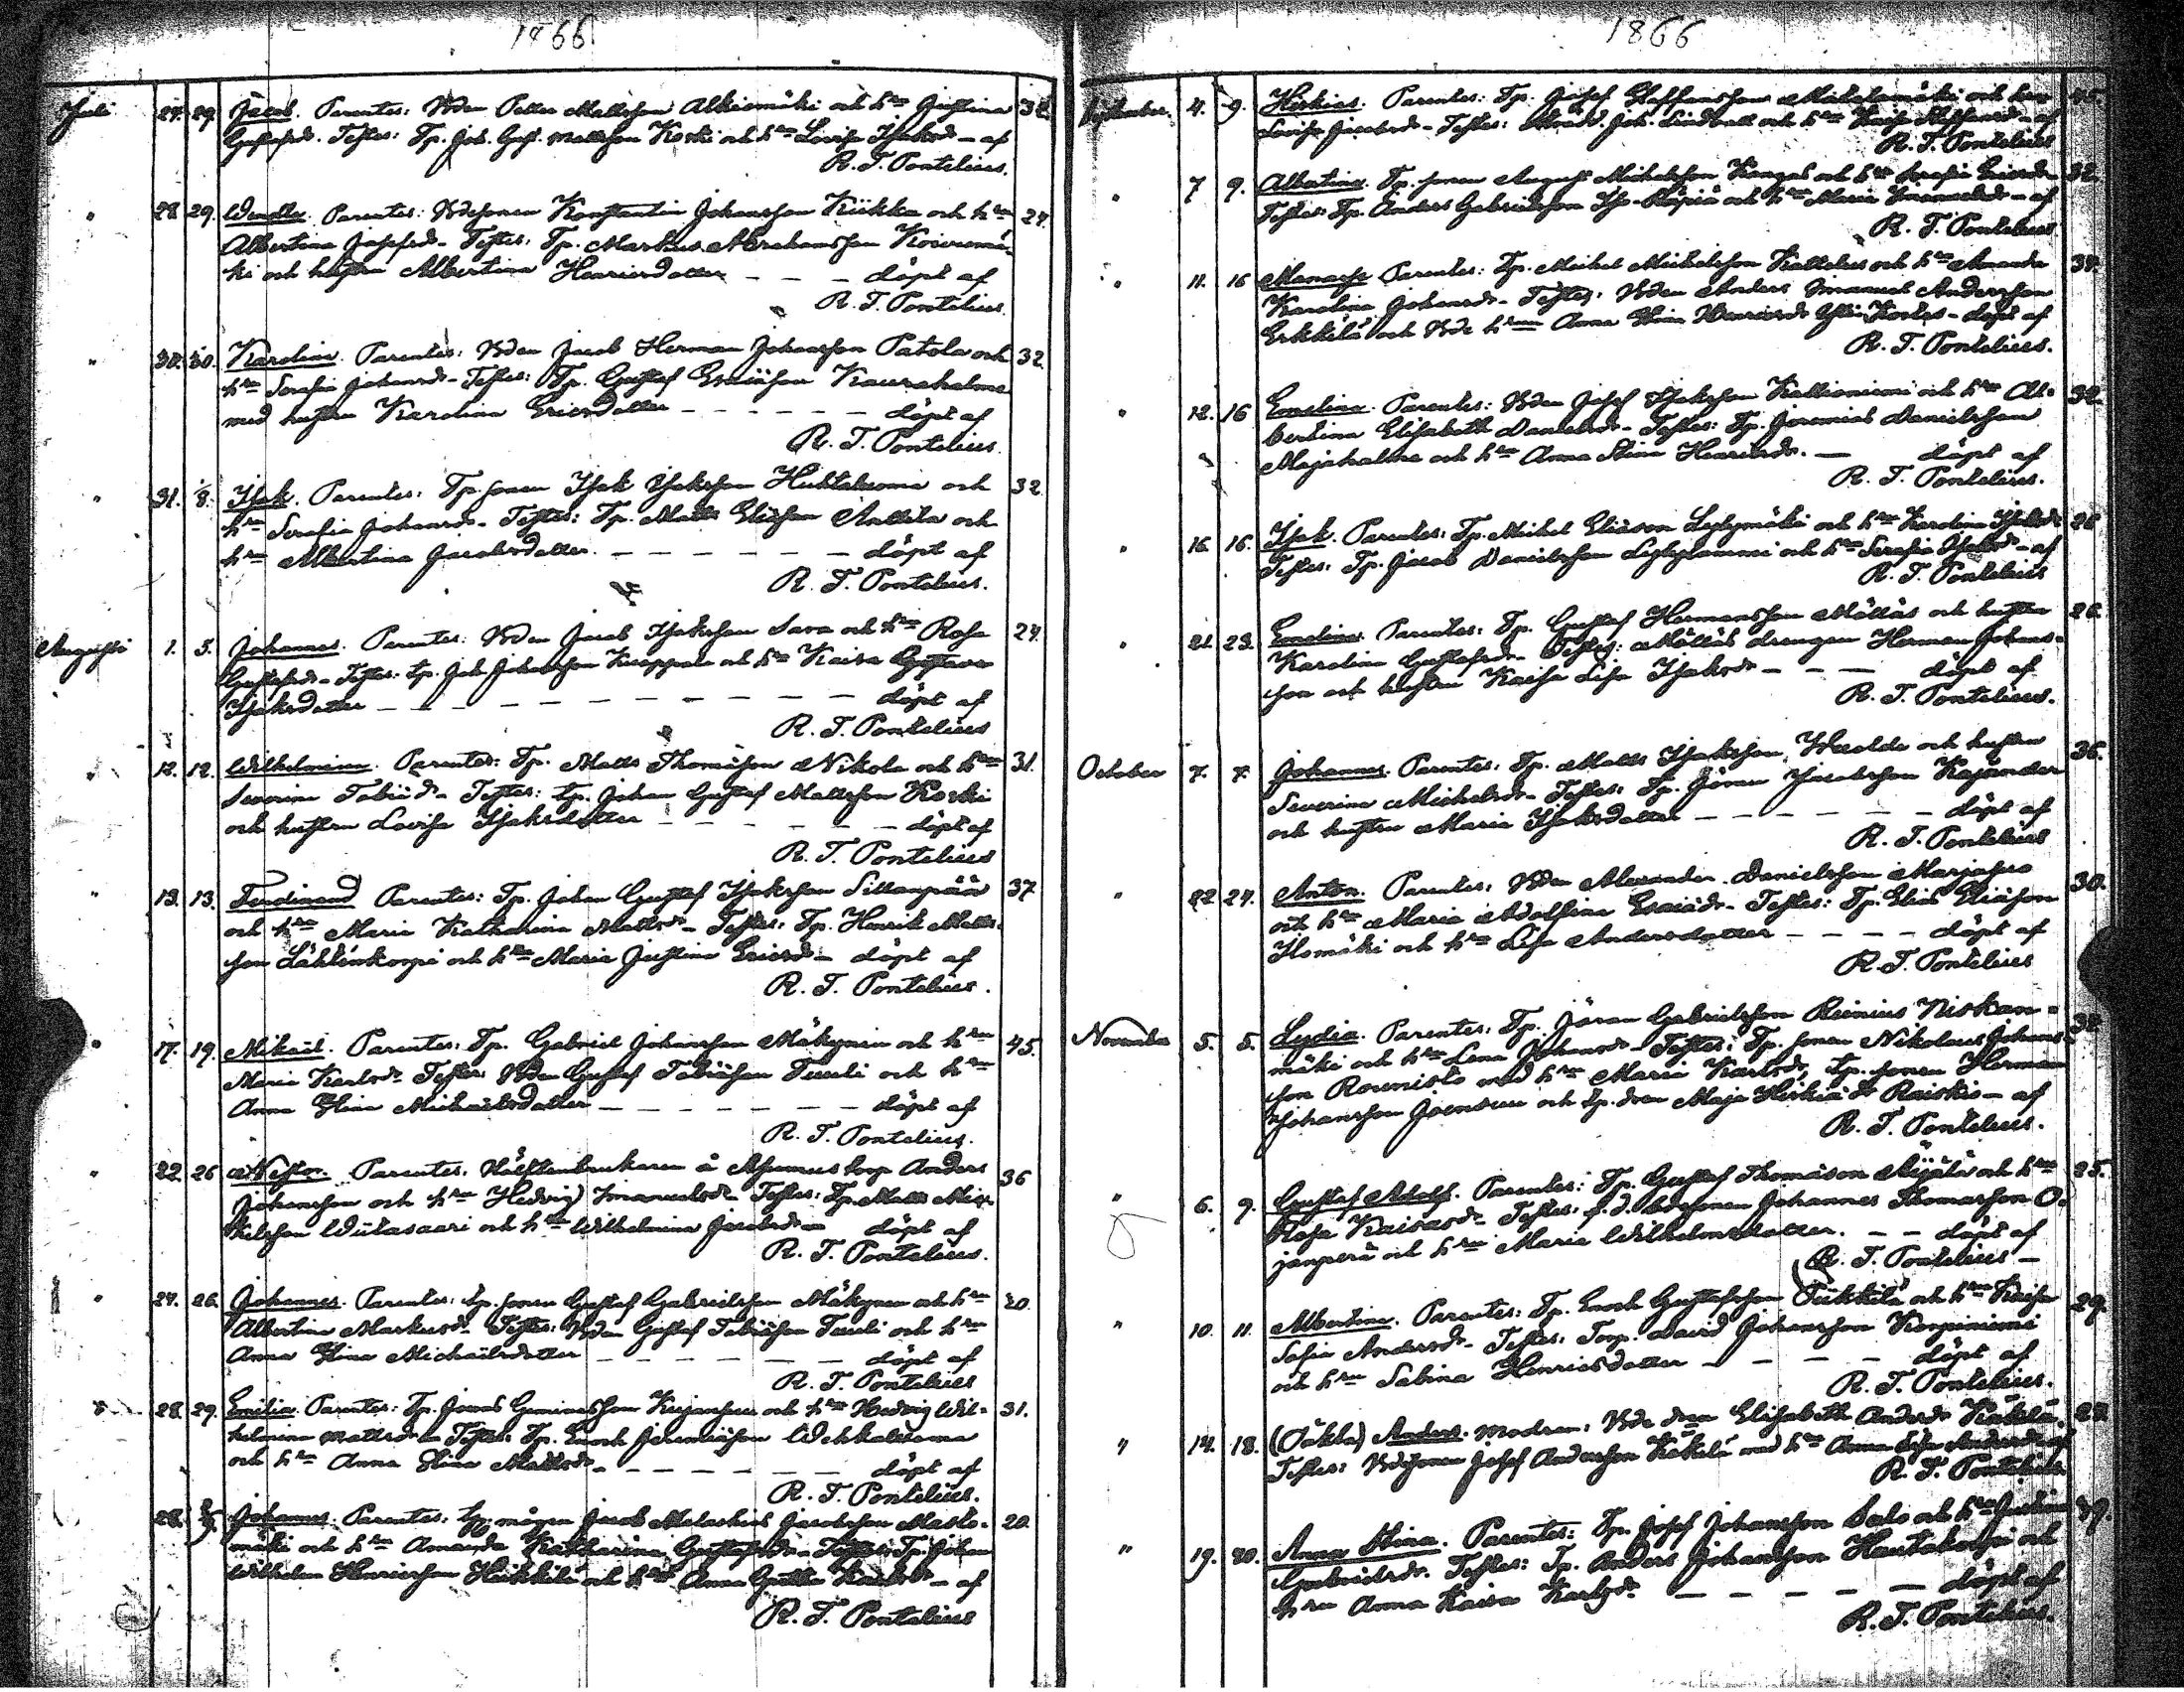 1866
Juli 27. 29. Jacob. Parentes: Bden Petter Mattsson Alkiomäki och hru Justina 32.
Gustafsd. Testes: Tp. Joh. Gust. Mattsson Koski och hru Lovisa Isaksd - af
R. T. Pontelius.
" 28. 29. Wendla. Parentes: Bdesonen Konstantin Johansson Kiikka och hru 27.
Albertina Josefsd - Testes: Tp. Markus Abrahamsson Koivumä-
ki och hustru Albertina Henricsdotter - - - döpt af
R. T. Pontelius.
" 30. 30. Karolina. Parentes: Bden Jacob Herman Johansson Patola och 32.
hru Serafia Johansd - Testes: Tp. Gustaf Esaiäson Kaurahalme
med hustru Karolina Ericsdotter - - - - - döpt af
R. T. Pontelius.
" 31. Isak. Parentes: Tp. sonen Isak Isaksson Huhtakoma och 32
hru Serafia Johansd - Testes: Tp. Matts Eliäson Anttila och
hru Albertina Jacobsdotter. - - - - - döpt af
R. T. Pontelius.
Augusti 1. 5. Johannes. Parentes: Bden Jacob Isaksson Sara och hru Rosa 27.
Gustafsd - Testes: tp. Joh Johansson Knuppala och hru Kaisa Gustava
Isaksdotter - - - - - - - - döpt af
R. T. Pontelius
" 12. 12. Wilhelmina. Parentes: Tp. Matts Thomäson Nikola och hru 31.
Severina Tobiäd - Testes: tp. Johan Gustaf Mattsson Koski
och hustru Lovisa Isaksdotter - - - - - - döpt af
R. T. Pontelius
" 13. 13. Ferdinand Parentes: Tp. Johan Gustaf Isaksson Sillanpää 37
och hru Maria Katharina Mattsd - Testes: Tp. Henrik Matts-
son Lähteenkorpi och hru Maria Justina Ericsd - döpt af
R. T. Pontelius.
" 17. 19. Mikaël. Parentes: Tp. Gabriel Johansson Mäkynen och hru 45.
Maria Karlsd - Testes: Bden Gustaf Tobiäson Tuuli och hru
Anna Stina Michaëlsdotter - - - - - - - döpt af
R. T. Pontelius.
" 22. 26 Nestor. Parentes. Häfftenbrukaren å Asumus torp Anders 36
Johansson och hru Hedvig Imanuelsd - Testes: Tp. Matts Mic-
kelsson Wiitasaari och hru Wilhelmina Jacobsd - döpt af
R. T. Pontelius.
" 24. 26. Johannes. Parentes: tp. sonen Gustaf Gabrielsson Mäkynen och hru 20.
Albertina Markusd - Testes: Bden Gustaf Tobiäson Tuuli och hru
Anna Stina Michaëlsdotter - - - - - - döpt af
R. T. Pontelius
" 28. 29. Emilia. Parentes: Tp. Jonas Gumiasson Kujanpuu och hru Hedvig Wil- 31.
helmina Mattsd - Testes: Tp. Enoch Jeremiäson Wehkakoma
och hru Anna Stina Mattsd. - - - - - - döpt af
R. T. Pontelius.
28. 2/9 Johannes. Parentes: tp. mågen Jacob Malaskias Jacobsson Masto- 20.
mäki och hru Amanda Katharina Gustafsd - Testes: Tp. Johan
Wilhelm Henricsson Heikkilä och hru Anna Greta - af
R. T. Pontelius
1866
September. 4. 9. Hiskias. Parentes: Tp. Josef Staffansson och hru 45.
Lovisa Jacobsd - Testes: Joh. Lindvall och hru Kaisa - af
R. T. Pontelius
" 7 9. Albertina. Tp. sonen August Michelsson Kangas och hru Serafia Ericsd - 32.
Testes: Tp. Anders Gabrielsson och hru Maria Imanuelsd - af
R. T. Pontelius
" 11. 16 Manasse Parentes: Tp. Michel Michelsson Kallelus och hru Amanda 34.
Karolina Johansd - Testes: Bden Anders Imanuel Andersson
Erkkilä och Bde hrun Anna Stina Henricsd - döpt af
R. T. Pontelius.
" 12. 16 Emelina. Parentes: Bden Josef Isaksson Kallioniemi och hru Al- 32.
bertina Elisabeth Danielsd - Testes: Tp. Jeremias Danielsson
Majahalme och hru Anna Stina Henricsd. - döpt af
R. T. Pontelius.
" 16. 16. Isak. Parentes: Tp. Michel Eliäson Lylymäki och hru Karolina Isaksd 26
Testes: Tp. Jacob Danielsson Lylylammi och hru Serafia Isaksd - af
R. T. Pontelius
" 21. 23. Emelina. Parentes: Tp. Gustaf Hermansson Möttäs och hustru 26.
Karolina Gustafsd - Testes: Möttäs drengen Herman Johans-
son och hustru Kaisa Lisa Isaksd - - - döpt af
R. T. Pontelius.
October 7. 7. Johannes. Parentes: Tp. Matts Isaksson, Wuolda och hustru 36.
Severina Michelsd - Testes: Tp. Jöran Jacobsson Kajander
och hustru Maria Isaksdotter - - - - - - döpt af
R. T. Pontelius
" 22 24. Anton. Parentes: Bden Alexander Danielsson Marjapuro 30.
och hru Maria Adolfina Esaiäd - Testes: Tp. Elias Eliäson
Ilomäki och hru Lisa Andersdotter - - - - döpt af
R. T. Pontelius
November 5. 5. Lydia. Parentes: Tp. Jöran Gabrielsson Reinius Niskan- 32.
mäki och hru Lena Johansd - Testes: Tp. sonen Nikolaus Johans-
son Rounisto med hru Maria Karlsd, tp. sonen Herman
Johansson Joensuu och tp. dren Maja Hiskiä d. Raiskio - af
R. T. Pontelius.
" 6. 9. Gustaf Adolf. Parentes: Tp. Gustaf Thomäson och hru 25.
Rosa Kaisasd - Testes: f. d. bdesonen Johannes Thomasson O-
janperä och hru Maria Wilhelmsdotter. - - döpt af
R. T. Pontelius -
" 10. 11. Albertina. Parentes: Tp. Enoch Gustafsson Pükkilä och hru Kaisa 29.
Sofia Andersd - Testes: Torp. David Johansson Korpiniemi
och hru Sabina Henricsdotter - - - - döpt af
R. T. Pontelius.
" 14. 18. (Oäkta) Anders. Modren: Bde dren Elisabeth Andersd Käkelä. 27.
Testes: Bdesonen Josef Andersson Käkelä med hru Anna Lisa Andersd af
R. T. Pontelius
" 19. 20. Anna Stina. Parentes: Tp. Josef Johansson Salo och hru Justina 39.
Gabrielsd. Testes: Tp. Anders Johansson Hautakorpi och
hru Anna Kaisa Karlsd. - - - - - döpt af
R. T. Pontelius.